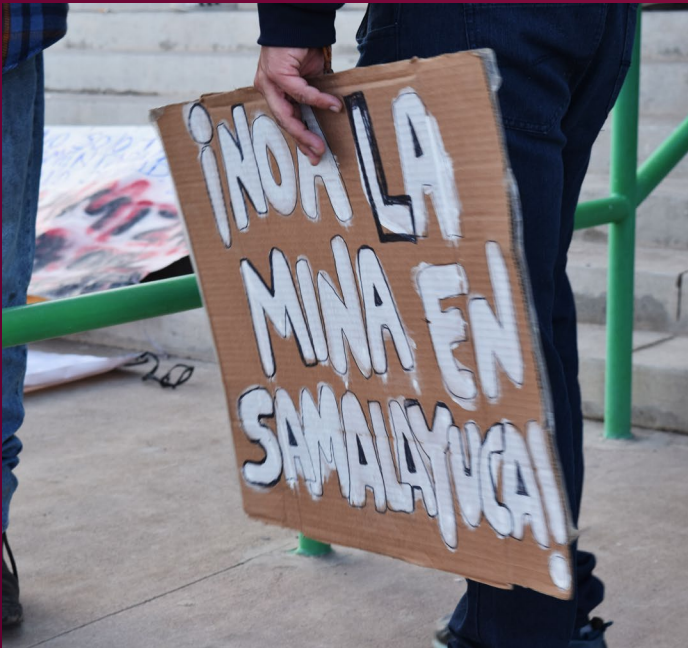 ¡NO A LA
MINA EN
SAMALAYUCA!